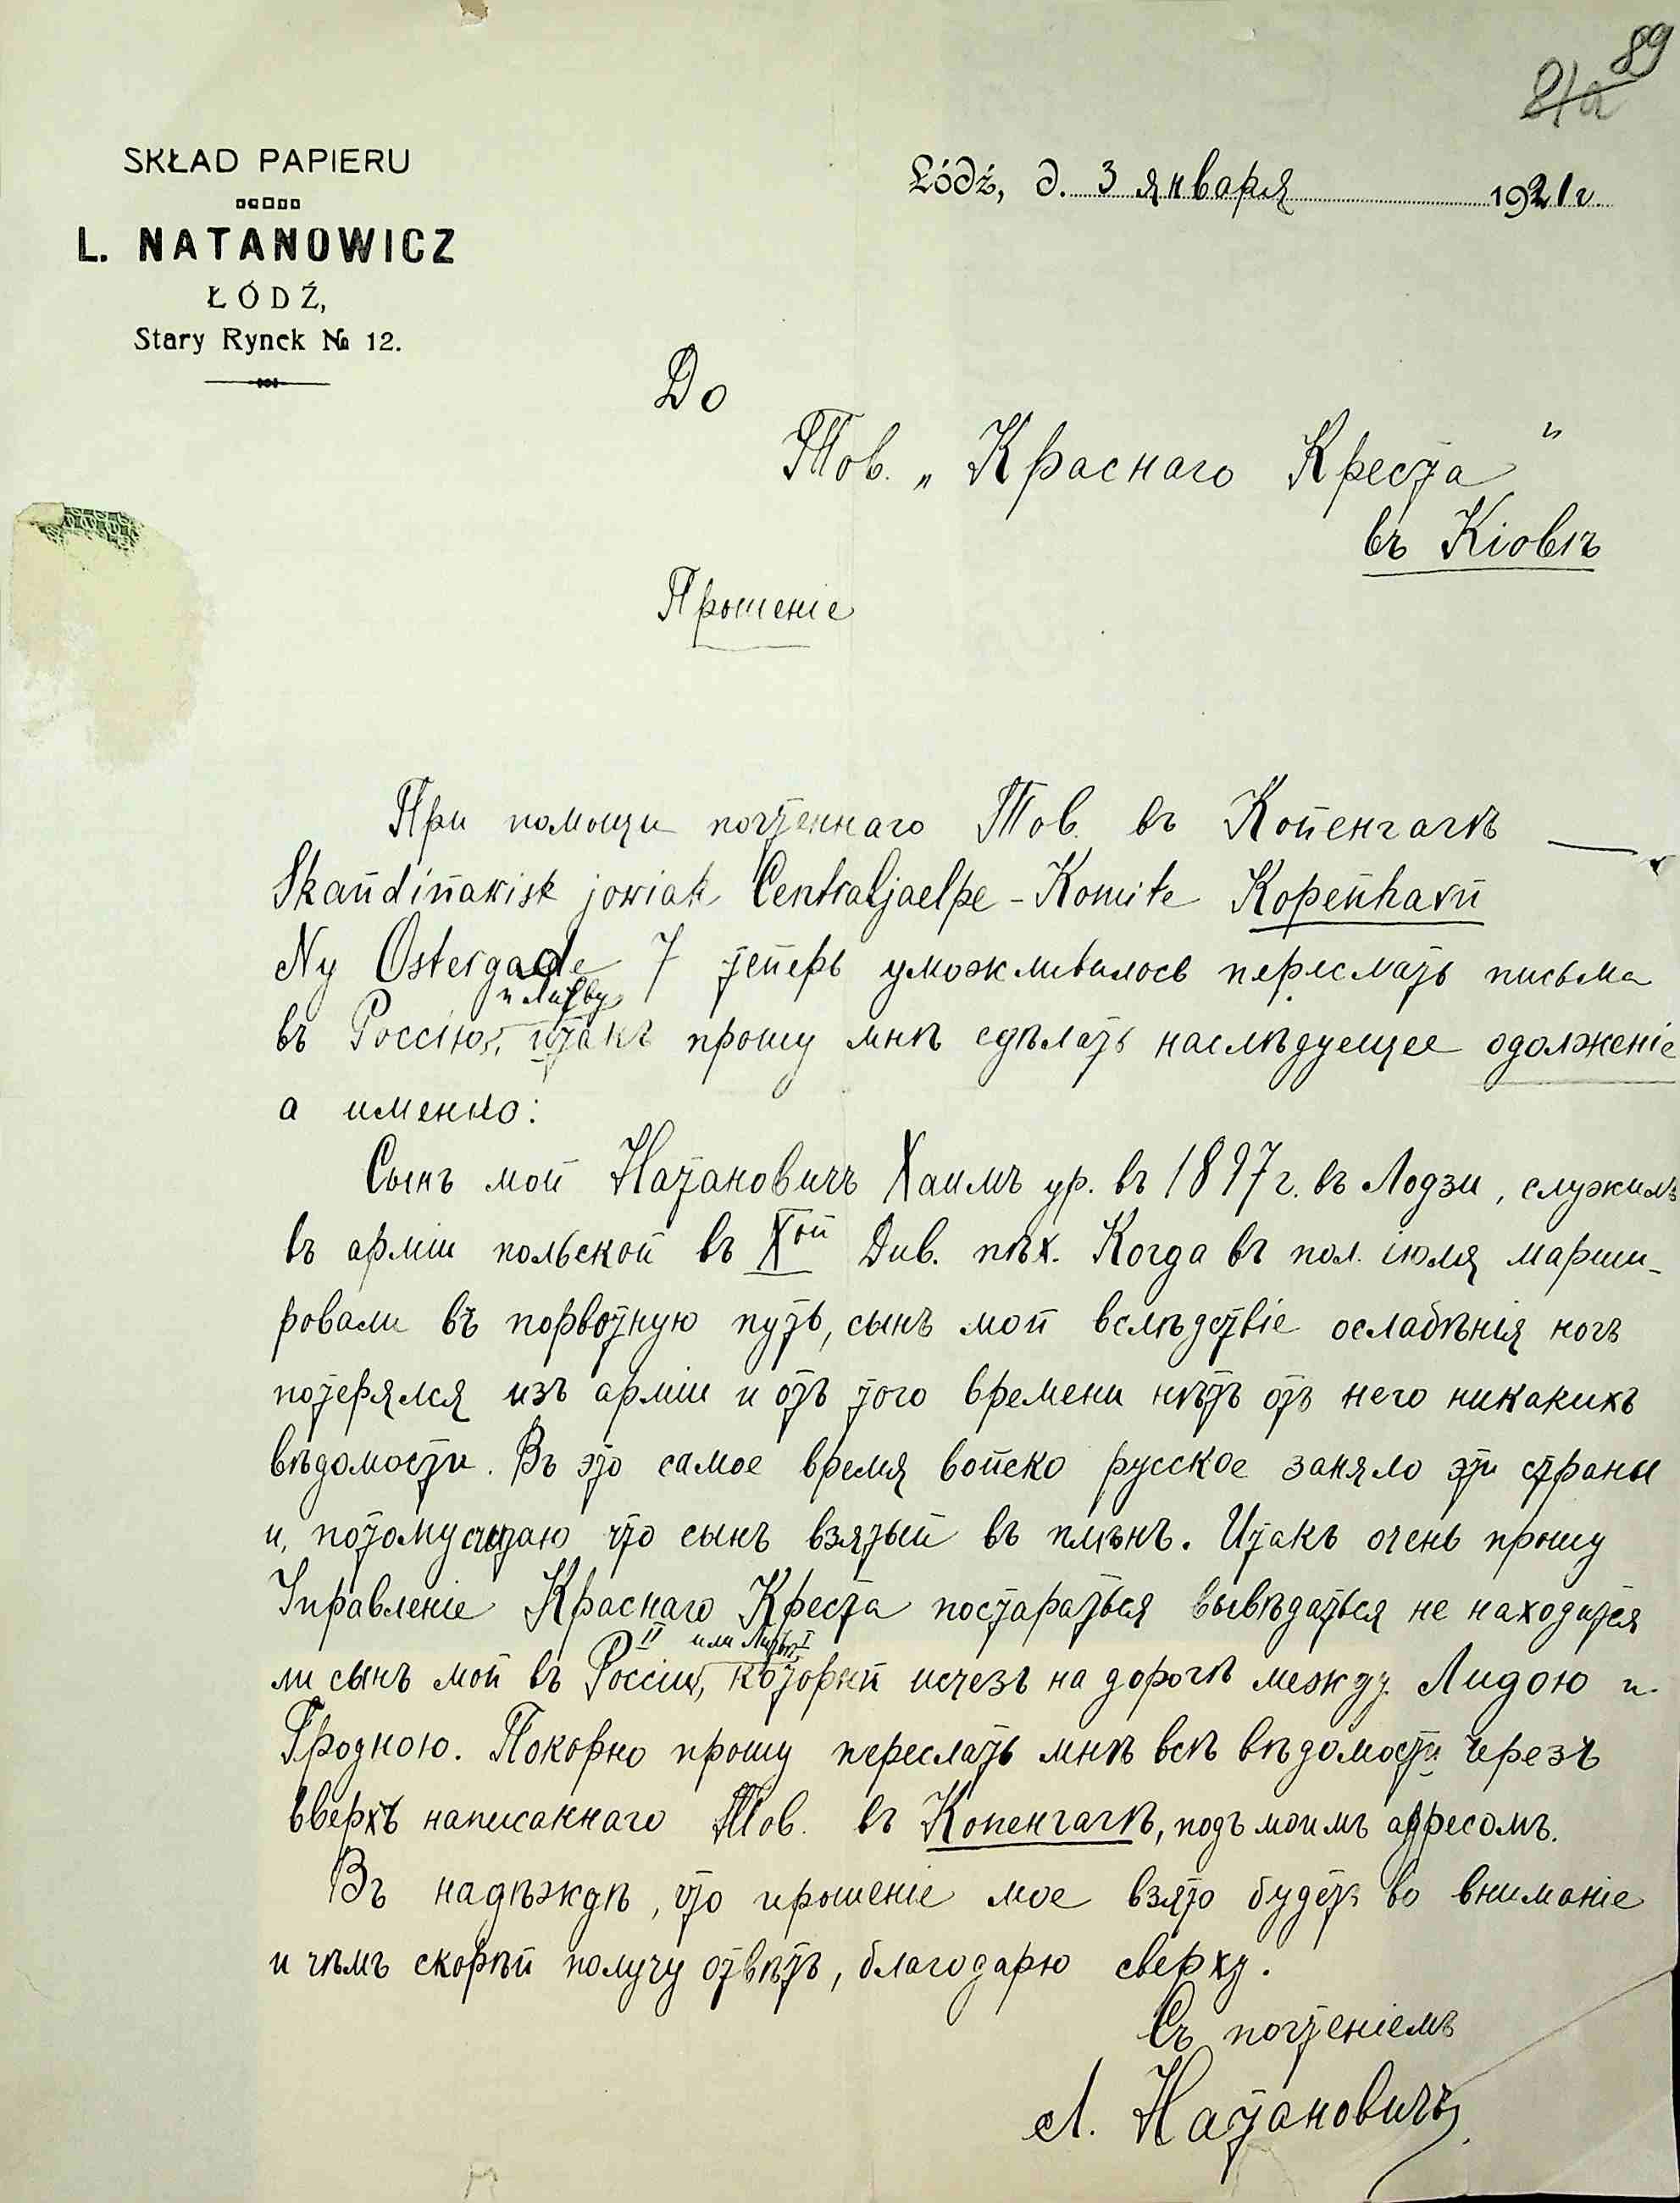 89
81a
SKŁAD PAPIERU
L. NATANOWICZ
ŁÓDŹ,
Stary Rynek № 12.
Łódź, d. 3 января 1921 г.
До
Тов. „Краснаго Креста"
въ Кіовѣ
Прошеніе
При помощи почтеннаго Тов. въ Копенгагѣ —
Skandinawisk jowiak Centraljaelpe-Komite Kopenhavn
Ny Ostergade 7 теперь уможливилось переслать письма
и Литву
въ Россію, итакъ прошу мнѣ сдѣлать наслѣдуещее одолженіе
а именно:
Сынъ мой Натановичъ Хаимъ ур. въ 1897 г. въ Лодзи, служилъ
въ арміи польской въ Xой Див. пѣх. Когда въ пол. іюля марши-
ровали въ порвотную путь, сынъ мой вслѣдствіе ослабѣнія ногъ
потерялся изъ арміи и отъ того времени нѣтъ отъ него никакихъ
вѣдомости. Въ это самое время войско русское заняло эти страны
и, потому считаю что сынъ взятый въ плѣнъ. Итакъ очень прошу
Управленіе Краснаго Креста постараться вывѣдаться не находится
II или Литвѣ I
ли сынъ мой въ Россіи, который исчезъ на дорогѣ между Лидою и
Гродною. Покорно прошу переслать мнѣ всѣ вѣдомости черезъ
вверхъ написаннаго Тов. въ Копенгагѣ, подъ моимъ адресомъ.
Въ надѣждѣ, что прошеніе мое взято будетъ во вниманіе
и чѣмъ скорѣй получу отвѣтъ, благодарю сверху.
Съ почтеніемъ
Л. Натановичъ